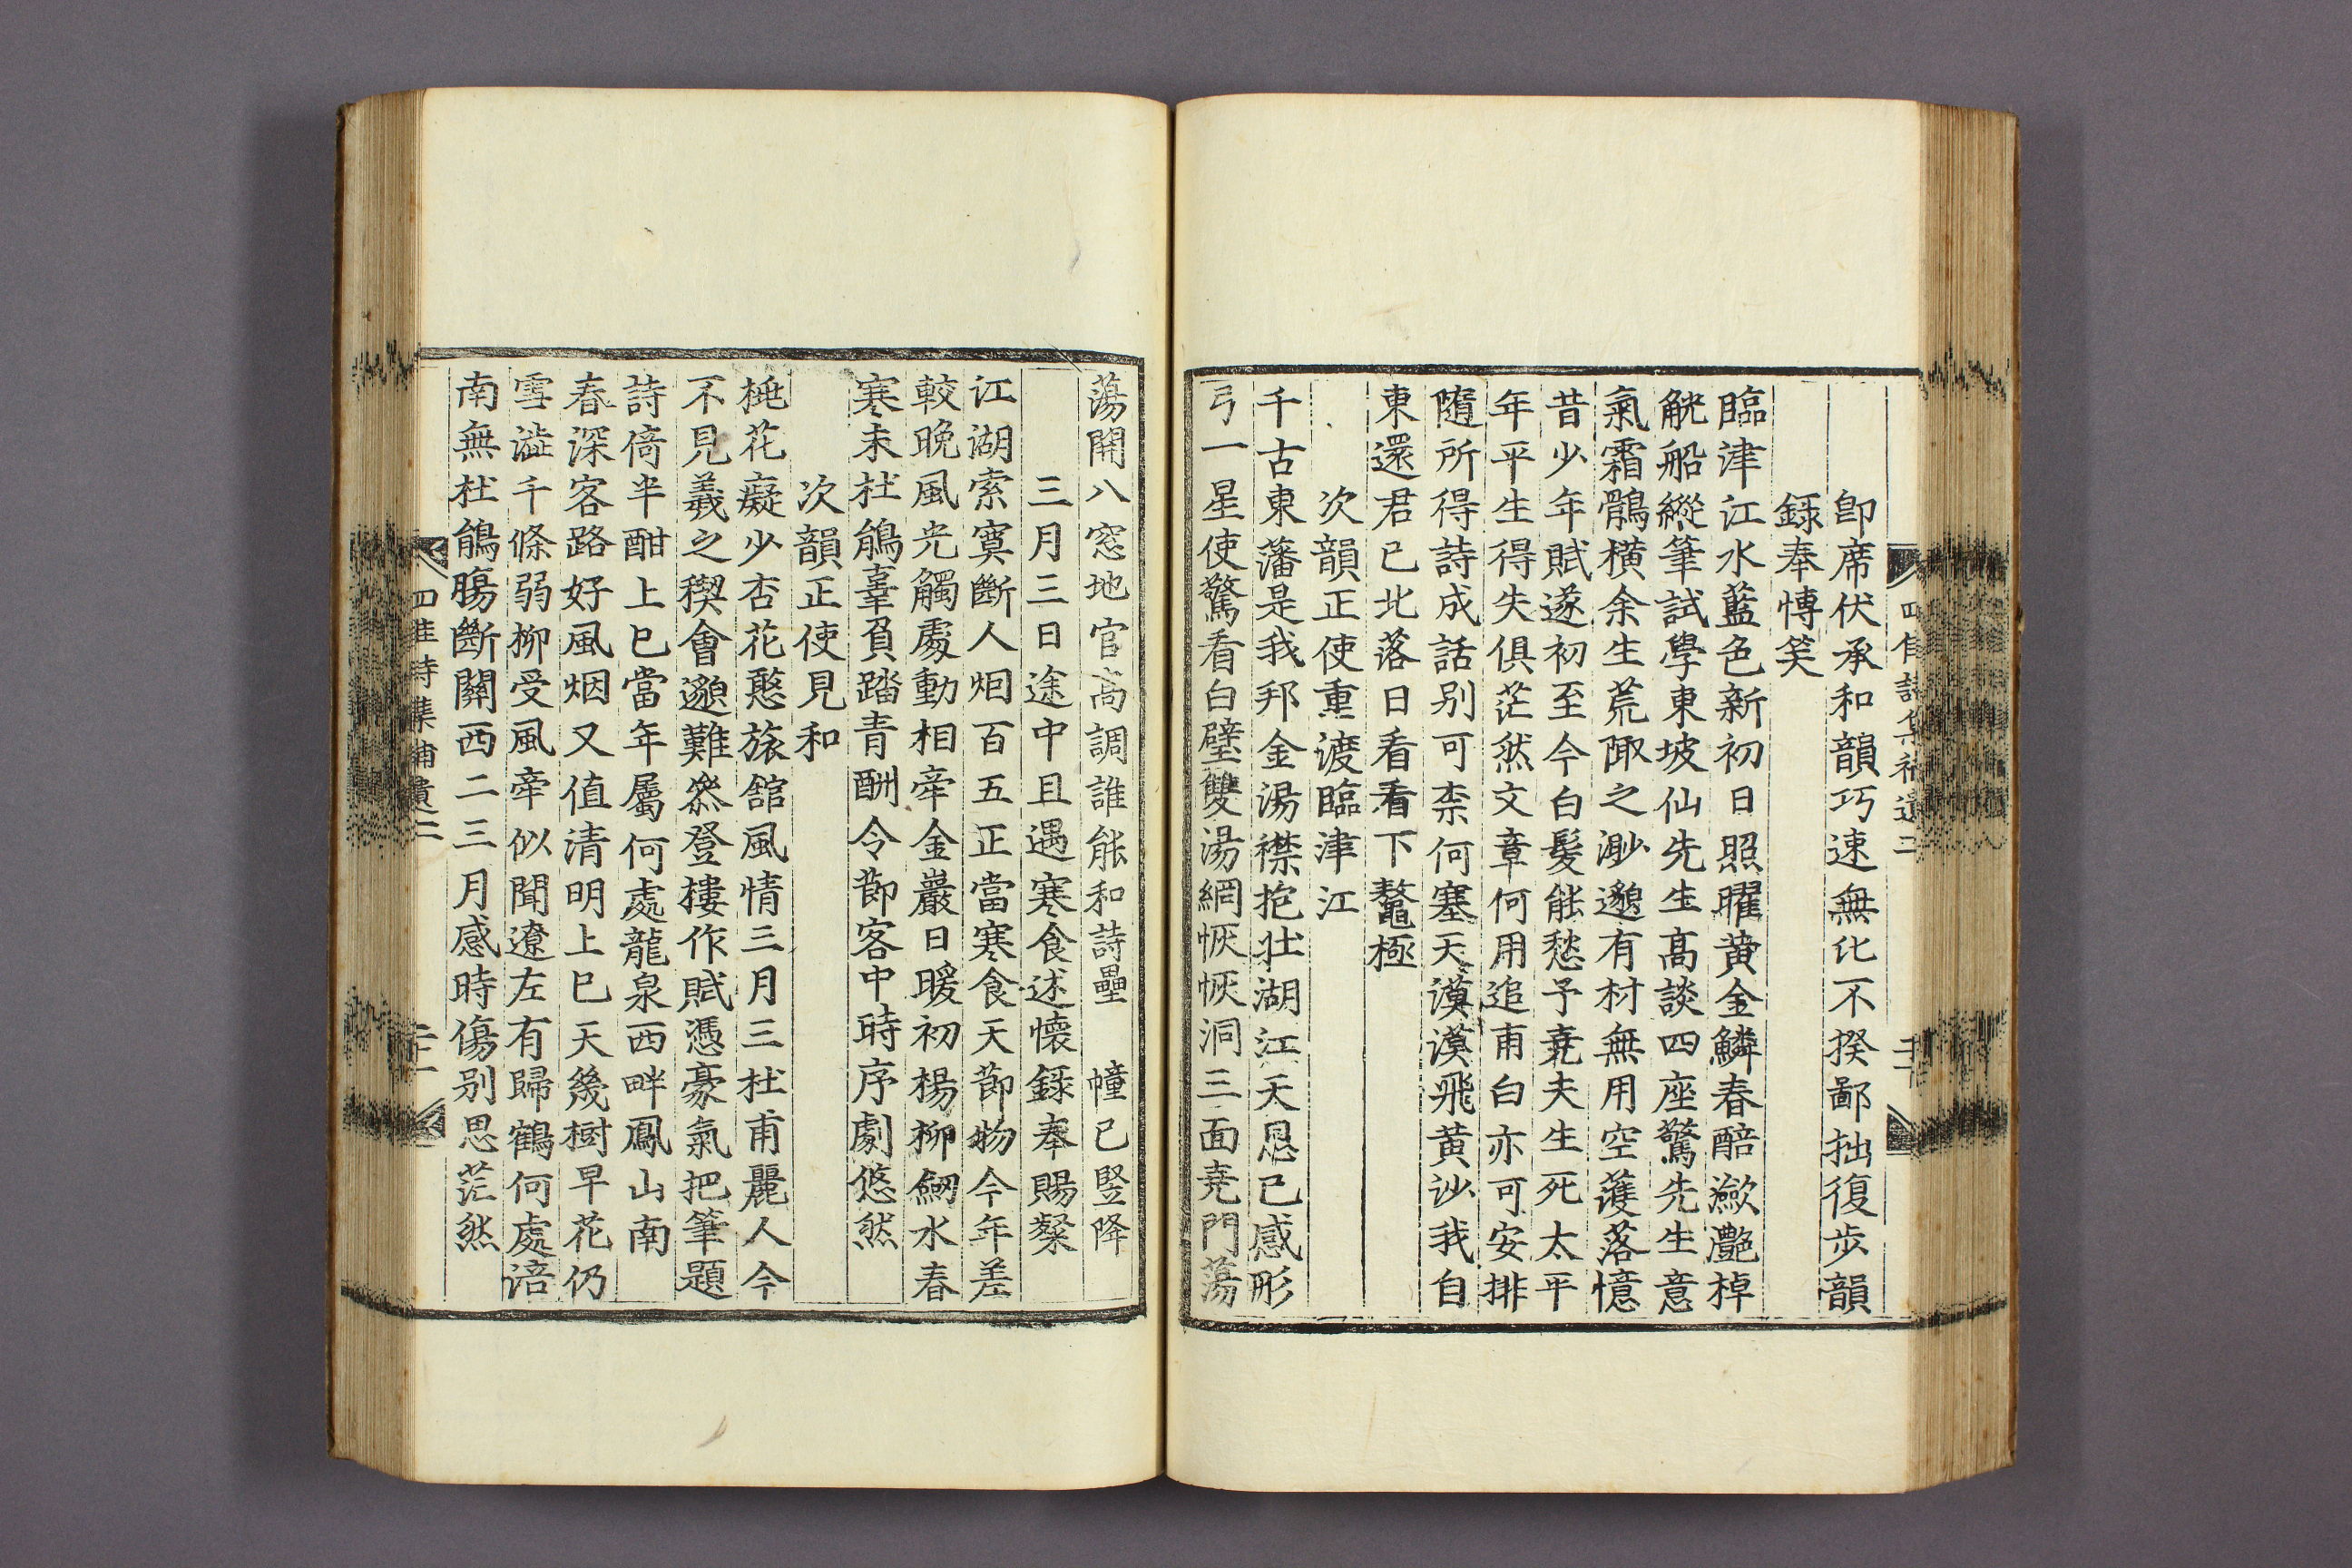 卽席伏承和韻巧速無化不揆鄙拙復步韻
錄奉愽笑
臨津江水藍色新初日照曜黄金鱗春醅瀲灧棹
觥船縱筆試學東坡仙先生髙談四座驚先生意
氣霜鶻橫余生荒陬之渺邈有村無用空濩落憶
昔少年賦遂初至今白髮能愁予堯夫生死太平
年平生得失俱茫然文章何用追甫白亦可安排
随所得詩成話别可柰何塞天漠漠飛黄沙我自
東還君已北落日看看下鼇極
次韻正使重渡臨津江
千古東藩是我邦金湯襟抱壯湖江天恩已感彤
弓一星使驚看白璧雙湯網恢恢洞三面堯門蕩
蕩開八窓地官高調誰能和詩壘 幢已竪降
三月三日途中且遇寒食述懷錄奉賜粲
江湖索寞斷人烟百五正當寒食天節物今年差
較晚風光觸處動相牽金巖日暖初楊柳劒水春
寒未杜鵑辜負踏青酬令節客中時序劇悠然
次韻正使見和
桃花癡少杏花憨旅舘風情三月三杜甫麗人今
不見羲之稧會邈難叅登樓作賦憑豪氣把筆題
詩倚半酣上巳當年屬何處龍泉西畔鳳山南
春深客路好風烟又值清明上巳天幾樹早花仍
雪澁千條弱柳受風牽似聞遼左有歸鶴何處涪
南無杜鵑腸斷關西二三月感時傷别思茫然